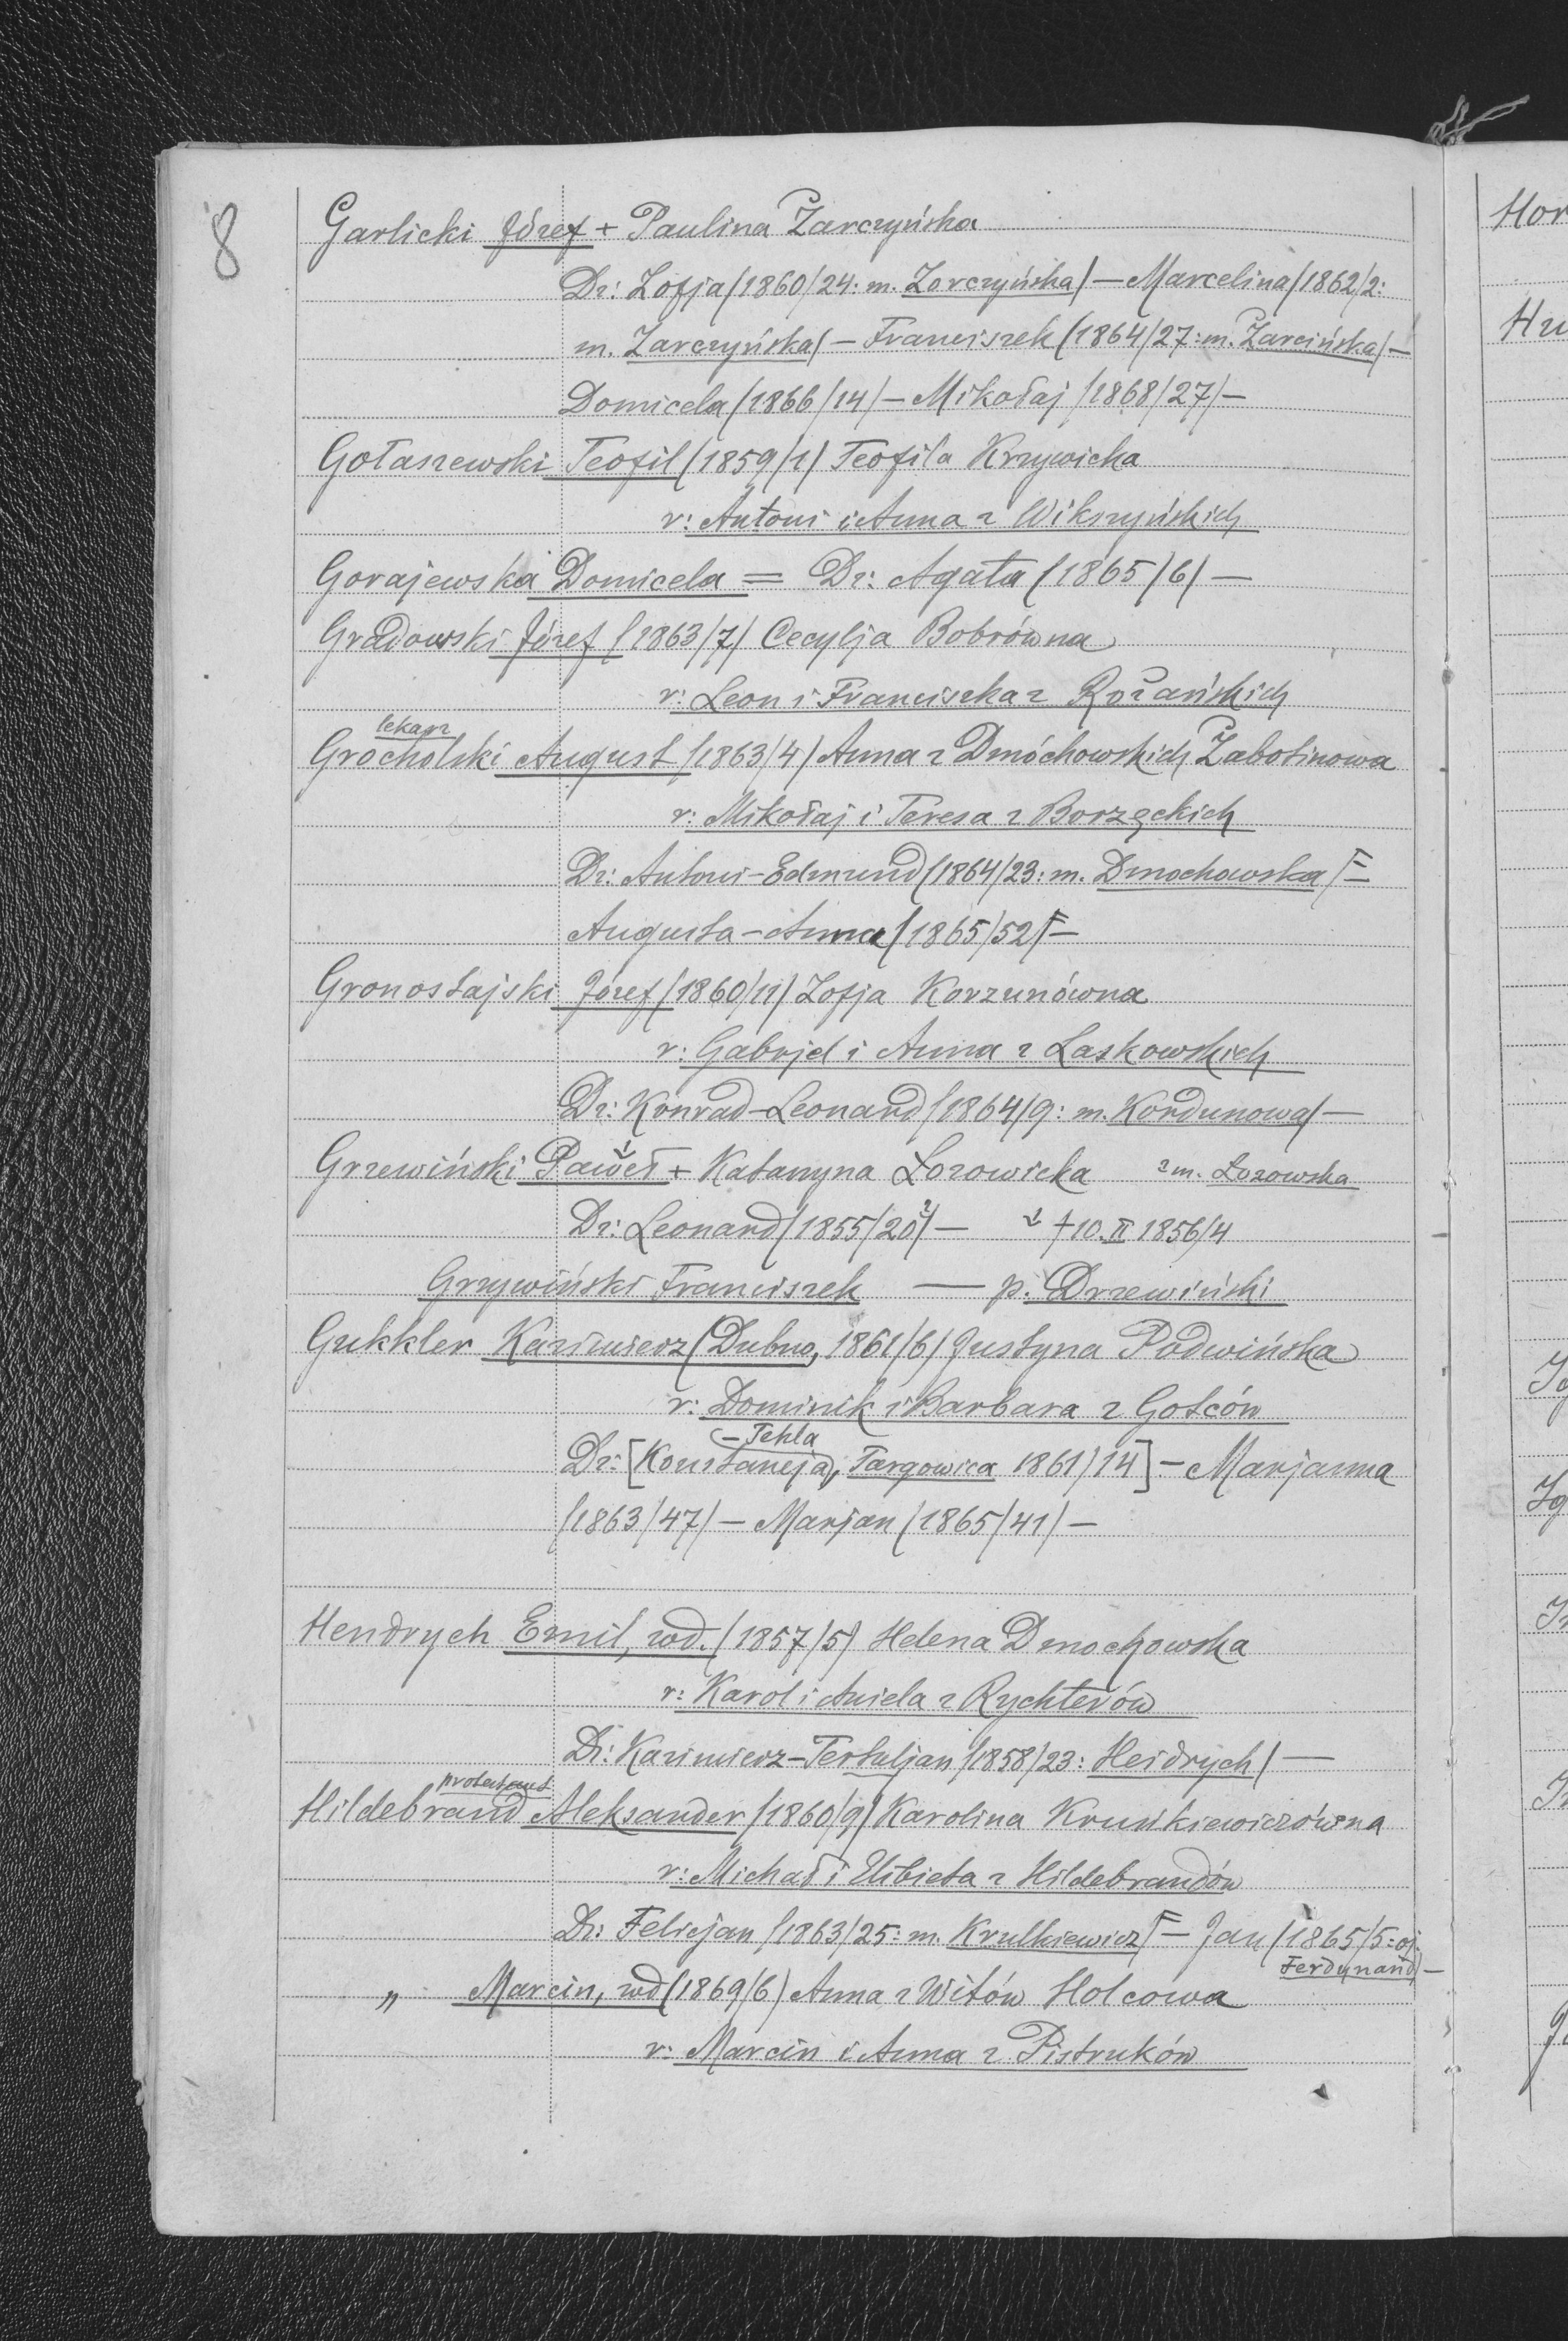 8
Garlicki Józef + Paulina Żarczyńska
Dz: Zofja /1860/24: m. Zorczyńska/ — Marcelina /1862/2:
m. Zarczyńska/ — Franciszek /1864/27: m. Zarcińska/ —
Domicela /1866/14/ — Mikołaj /1868/27/ —
Gołaszewski Teofil /1859/1/ Teofila Krzywicka
r: Antoni i Anna z Wikszyńskich
Gorajewska Domicela = Dz: Agata /1865/6/ —
Gradowski Józef /1863/7/ Cecylja Bobrówna
r: Leon i Franciszka z Rożańskich
lekarz
Grocholski August /1863/4/ Anna z Dmóchowskich Żabotinowa
r: Mikołaj i Teresa z Borzęckich
Dz: Antoni-Edmund /1864/23: m. Dmochowska/ =
Augusta-Anna /1865/52/ —
Gronostajski Józef /1860/11/ Zofja Korzunówna
r: Gabrjel i Anna z Laskowskich
Dz: Konrad-Leonard /1864/9: m. Kordunowa/ —
Grzewiński Paweł + Katarzyna Łozowicka zm. Łozowska
Dz: Leonard /1855/20?/ — ↓ +10.II 1856/4
Grzywiński Franciszek — p. Drzewiński
Gukkler Kazimierz /Dubno, 1861/6/ Justyna Podwińska
r: Dominik i Barbara z Gotców
-Tekla
Dz: [Konstancja, Targowica 1861/14] — Marjanna
/1863/47/ — Marjan /1865/41/ —
Hendrych Emil, wd. /1857/5/ Helena Dmochowska
r: Karol i Aniela z Rychterów
Dz: Kazimierz-Tertuljan /1858/23: Heidrych/ —
protestant
Hildebrand Aleksander /1860/9/ Karolina Kruńkiewiczówna
r: Michał i Elżbieta z Hildebrandów
Dz: Felicjan /1863/25: m. Krulkiewicz/ — Jan /1865/5: oj.
Ferdynand/ —
„ Marcin, wd /1869/6/ Anna z Witów Holcowa
r: Marcin i Anna z Pistruków
Hor
Hu